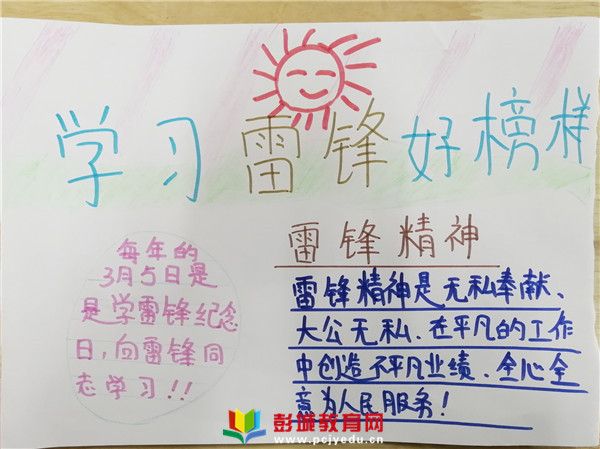 学习雷锋好榜样
每年的
3月5日是
是学雷锋纪念
日,向雷锋同
志学习!!
雷锋精神
雷锋精神是无私奉献、
大公无私、在平凡的工作
中创造不平凡业绩、全心全
意为人民服务!
彭城教育网
www.pcjyedu.cn